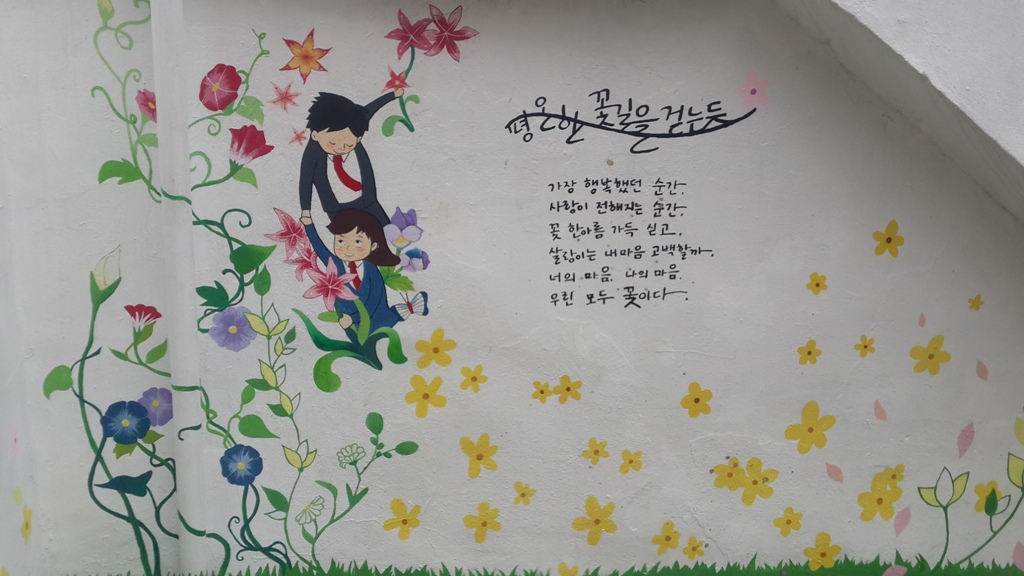 평온한 꽃길을 걷는듯
가장 행복했던 순간.
사랑이 전해지는 순간.
꽃 한아름 가득 싣고.
살랑이는 내마음 고백할까.
너의 마음. 나의 마음.
우린 모두 꽃이다.